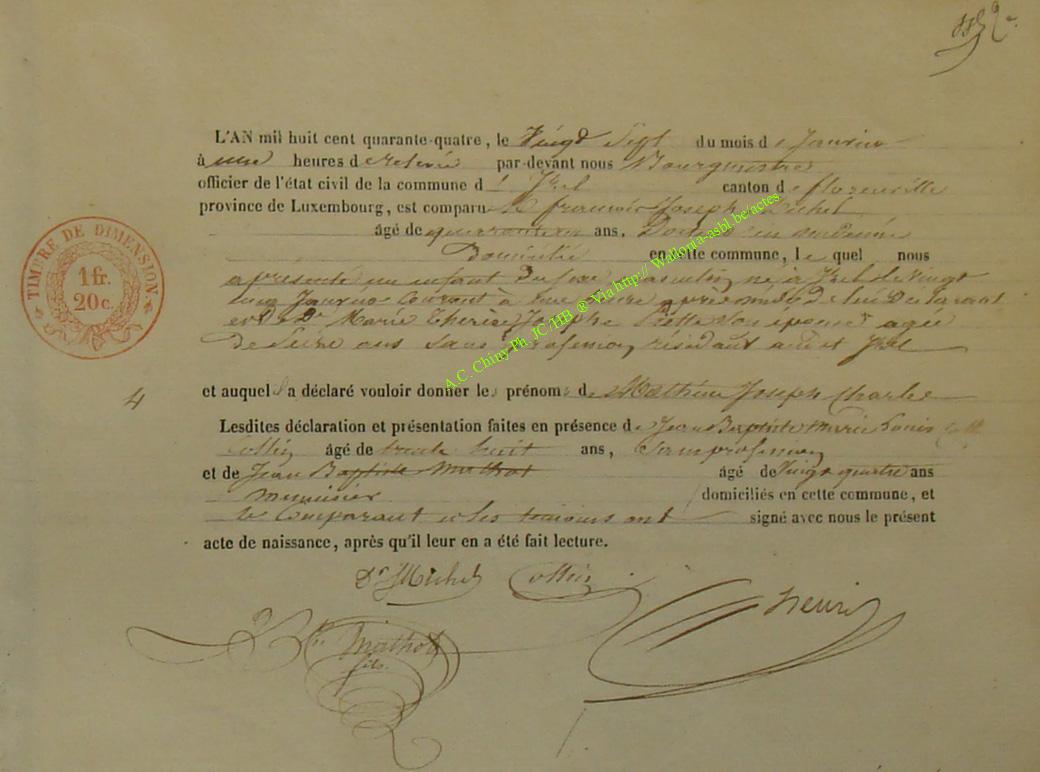 L'AN mil huit cent quarante-quatre, le Vingt Sept du mois de Janvier
à une heures de relevée par-devant nous Bourgmestre
officier de l'état civil de la commune d'Izel canton de florenville
province de Luxembourg, est comparu le françois Joseph Michel
âgé de ans, Docteur en médecine
Domicilié en cette commune, le quel nous
a présenté un enfant du sexe masculin, né à Izel le vingt
Janvier Courant à une heure de lui Déclarant
et de De Marie Therese Josephe son épouse agée
De ans Sans profession, résidant audit Izel
4
et auquel a déclaré vouloir donner les prénoms de Mathieu Joseph Charles
Lesdites déclaration et présentation faites en présence de Jean Baptiste Marie Louis
Collin âgé de trente huit ans, Sans profession
et de Jean Baptiste Mathot âgé de Vingt quatre ans
menuisier domiciliés en cette commune, et
le Comparant et les témoins ont signé avec nous le présent
acte de naissance, après qu'il leur en a été fait lecture.
Dr Michel Collin
Henri
Mathot
fils
TIMBRE DE DIMENSION
1 fr.
20 c.
A.C. Chiny Ph. JC /HB ® Via http:// Wallonia-asbl.be/actes